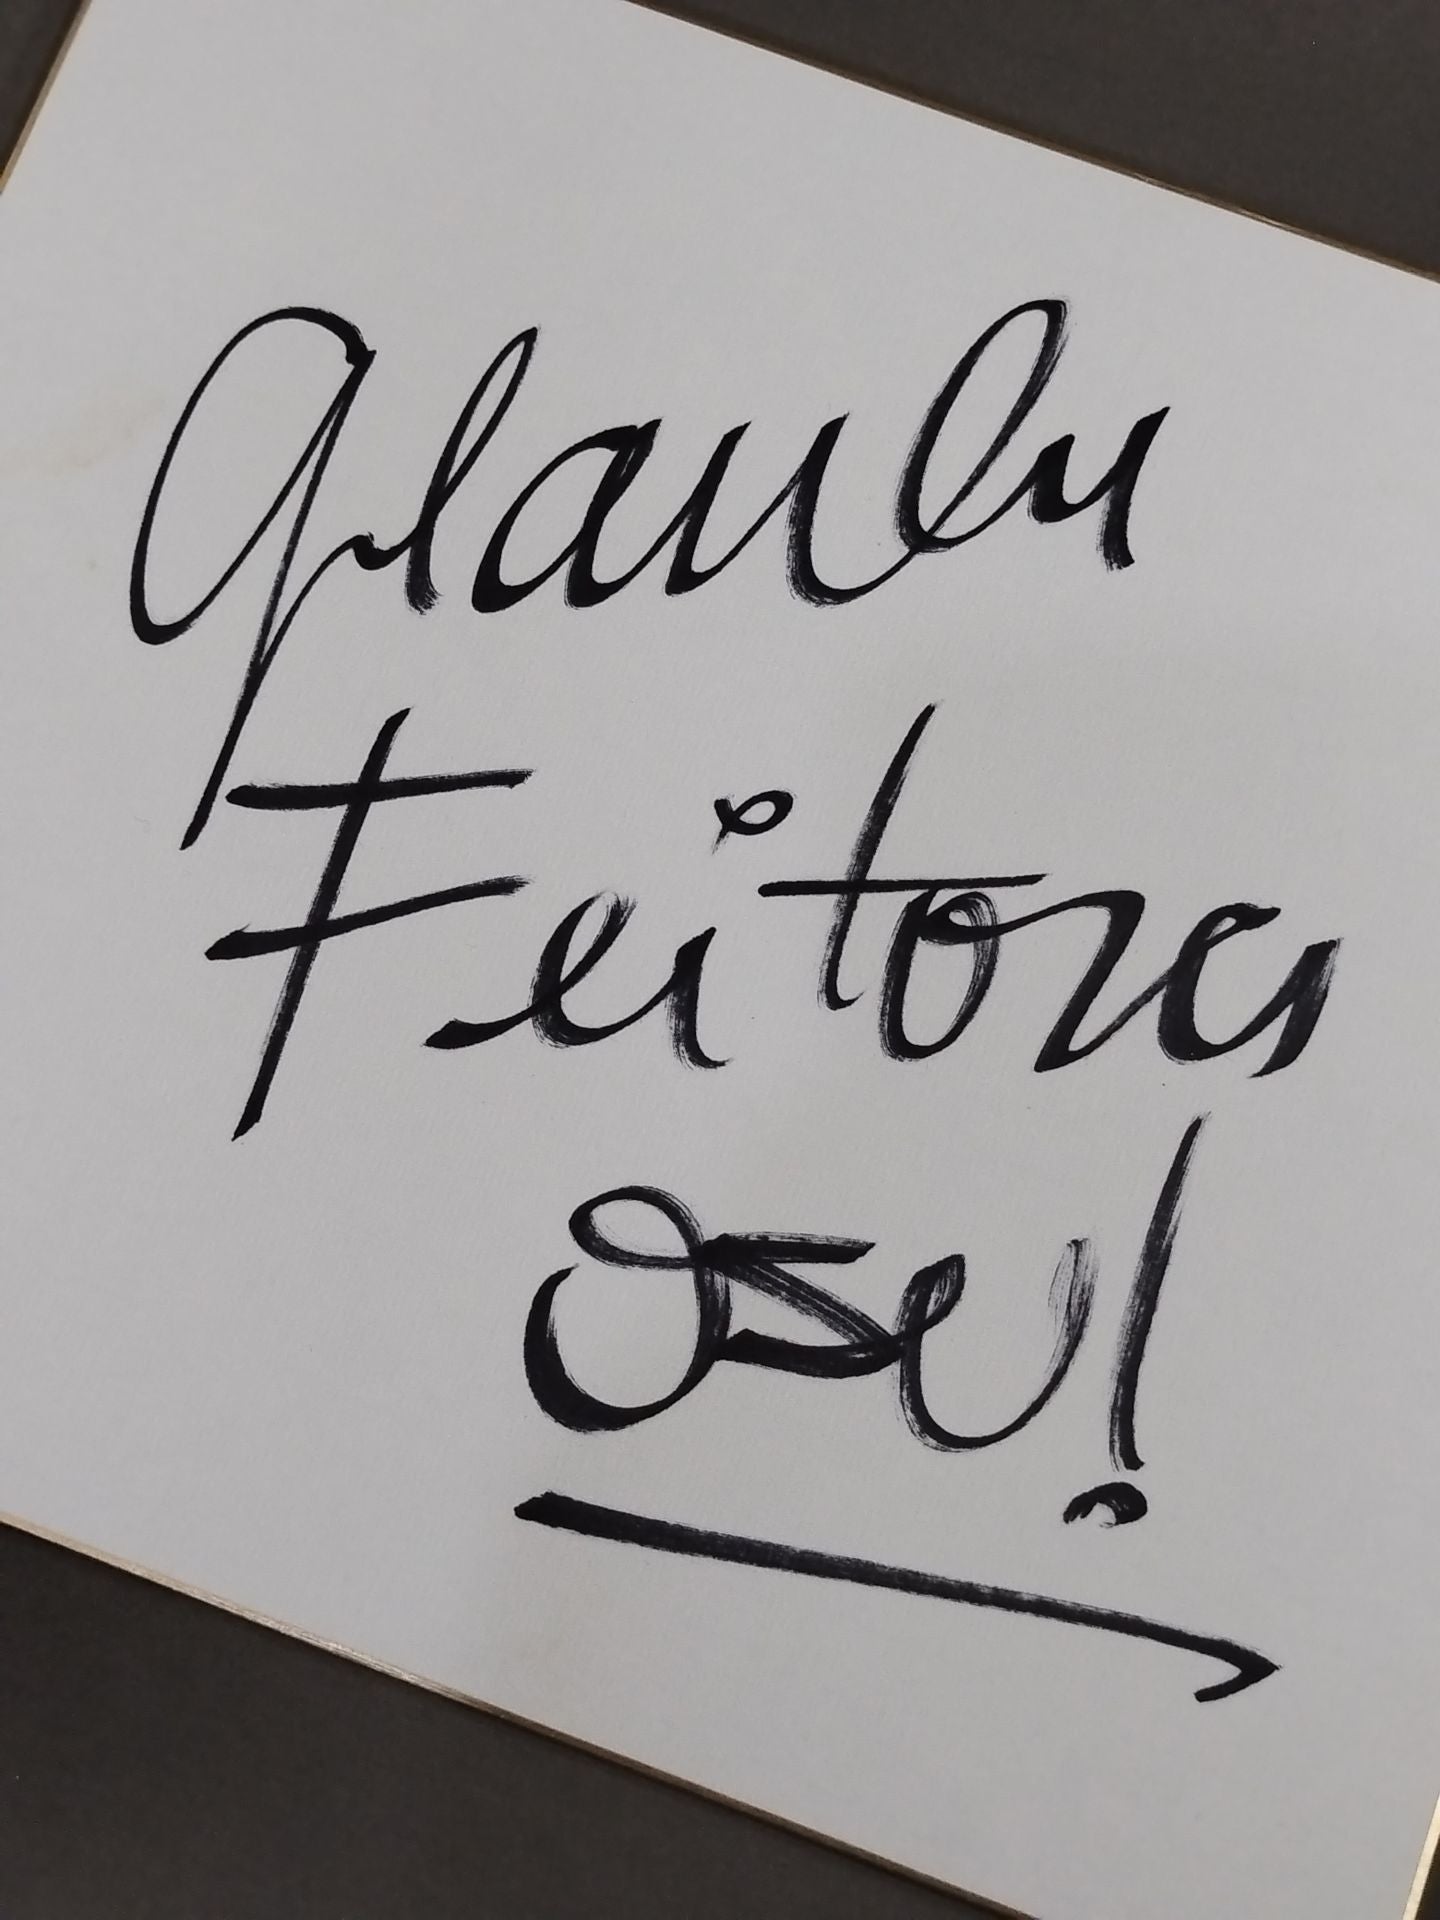 Glaube
Feitosa
osu!